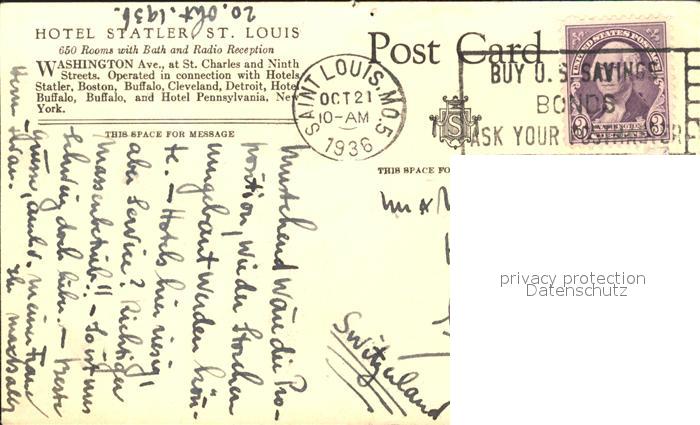 20. Okt. 1936.
HOTEL STATLER, ST. LOUIS
650 Rooms with Bath and Radio Reception
WASHINGTON Ave., at St. Charles and Ninth
Streets. Operated in connection with Hotels
Statler, Boston, Buffalo, Cleveland, Detroit, Hotel
Buffalo, Buffalo, and Hotel Pennsylvania, New
York.
Post Card
SAINT LOUIS, MO. 5
OCT 21
10-AM
1936
BUY U.S. SAVINGS
BONDS
ASK YOUR
UNITED STATES POSTAGE
3 3
S
THIS SPACE FOR MESSAGE
THIS SPACE FO
Umstehend wäre die Pro-
position, wie der Storchen
umgebaut werden könn-
te. – Hotels hier riesig,
aber Service? Richtiger
Massenbetrieb!! – So ist uns
doch lieber. – Beste
Grüsse, auch v. meiner Frau
Switzerland
privacy protection
Datenschutz